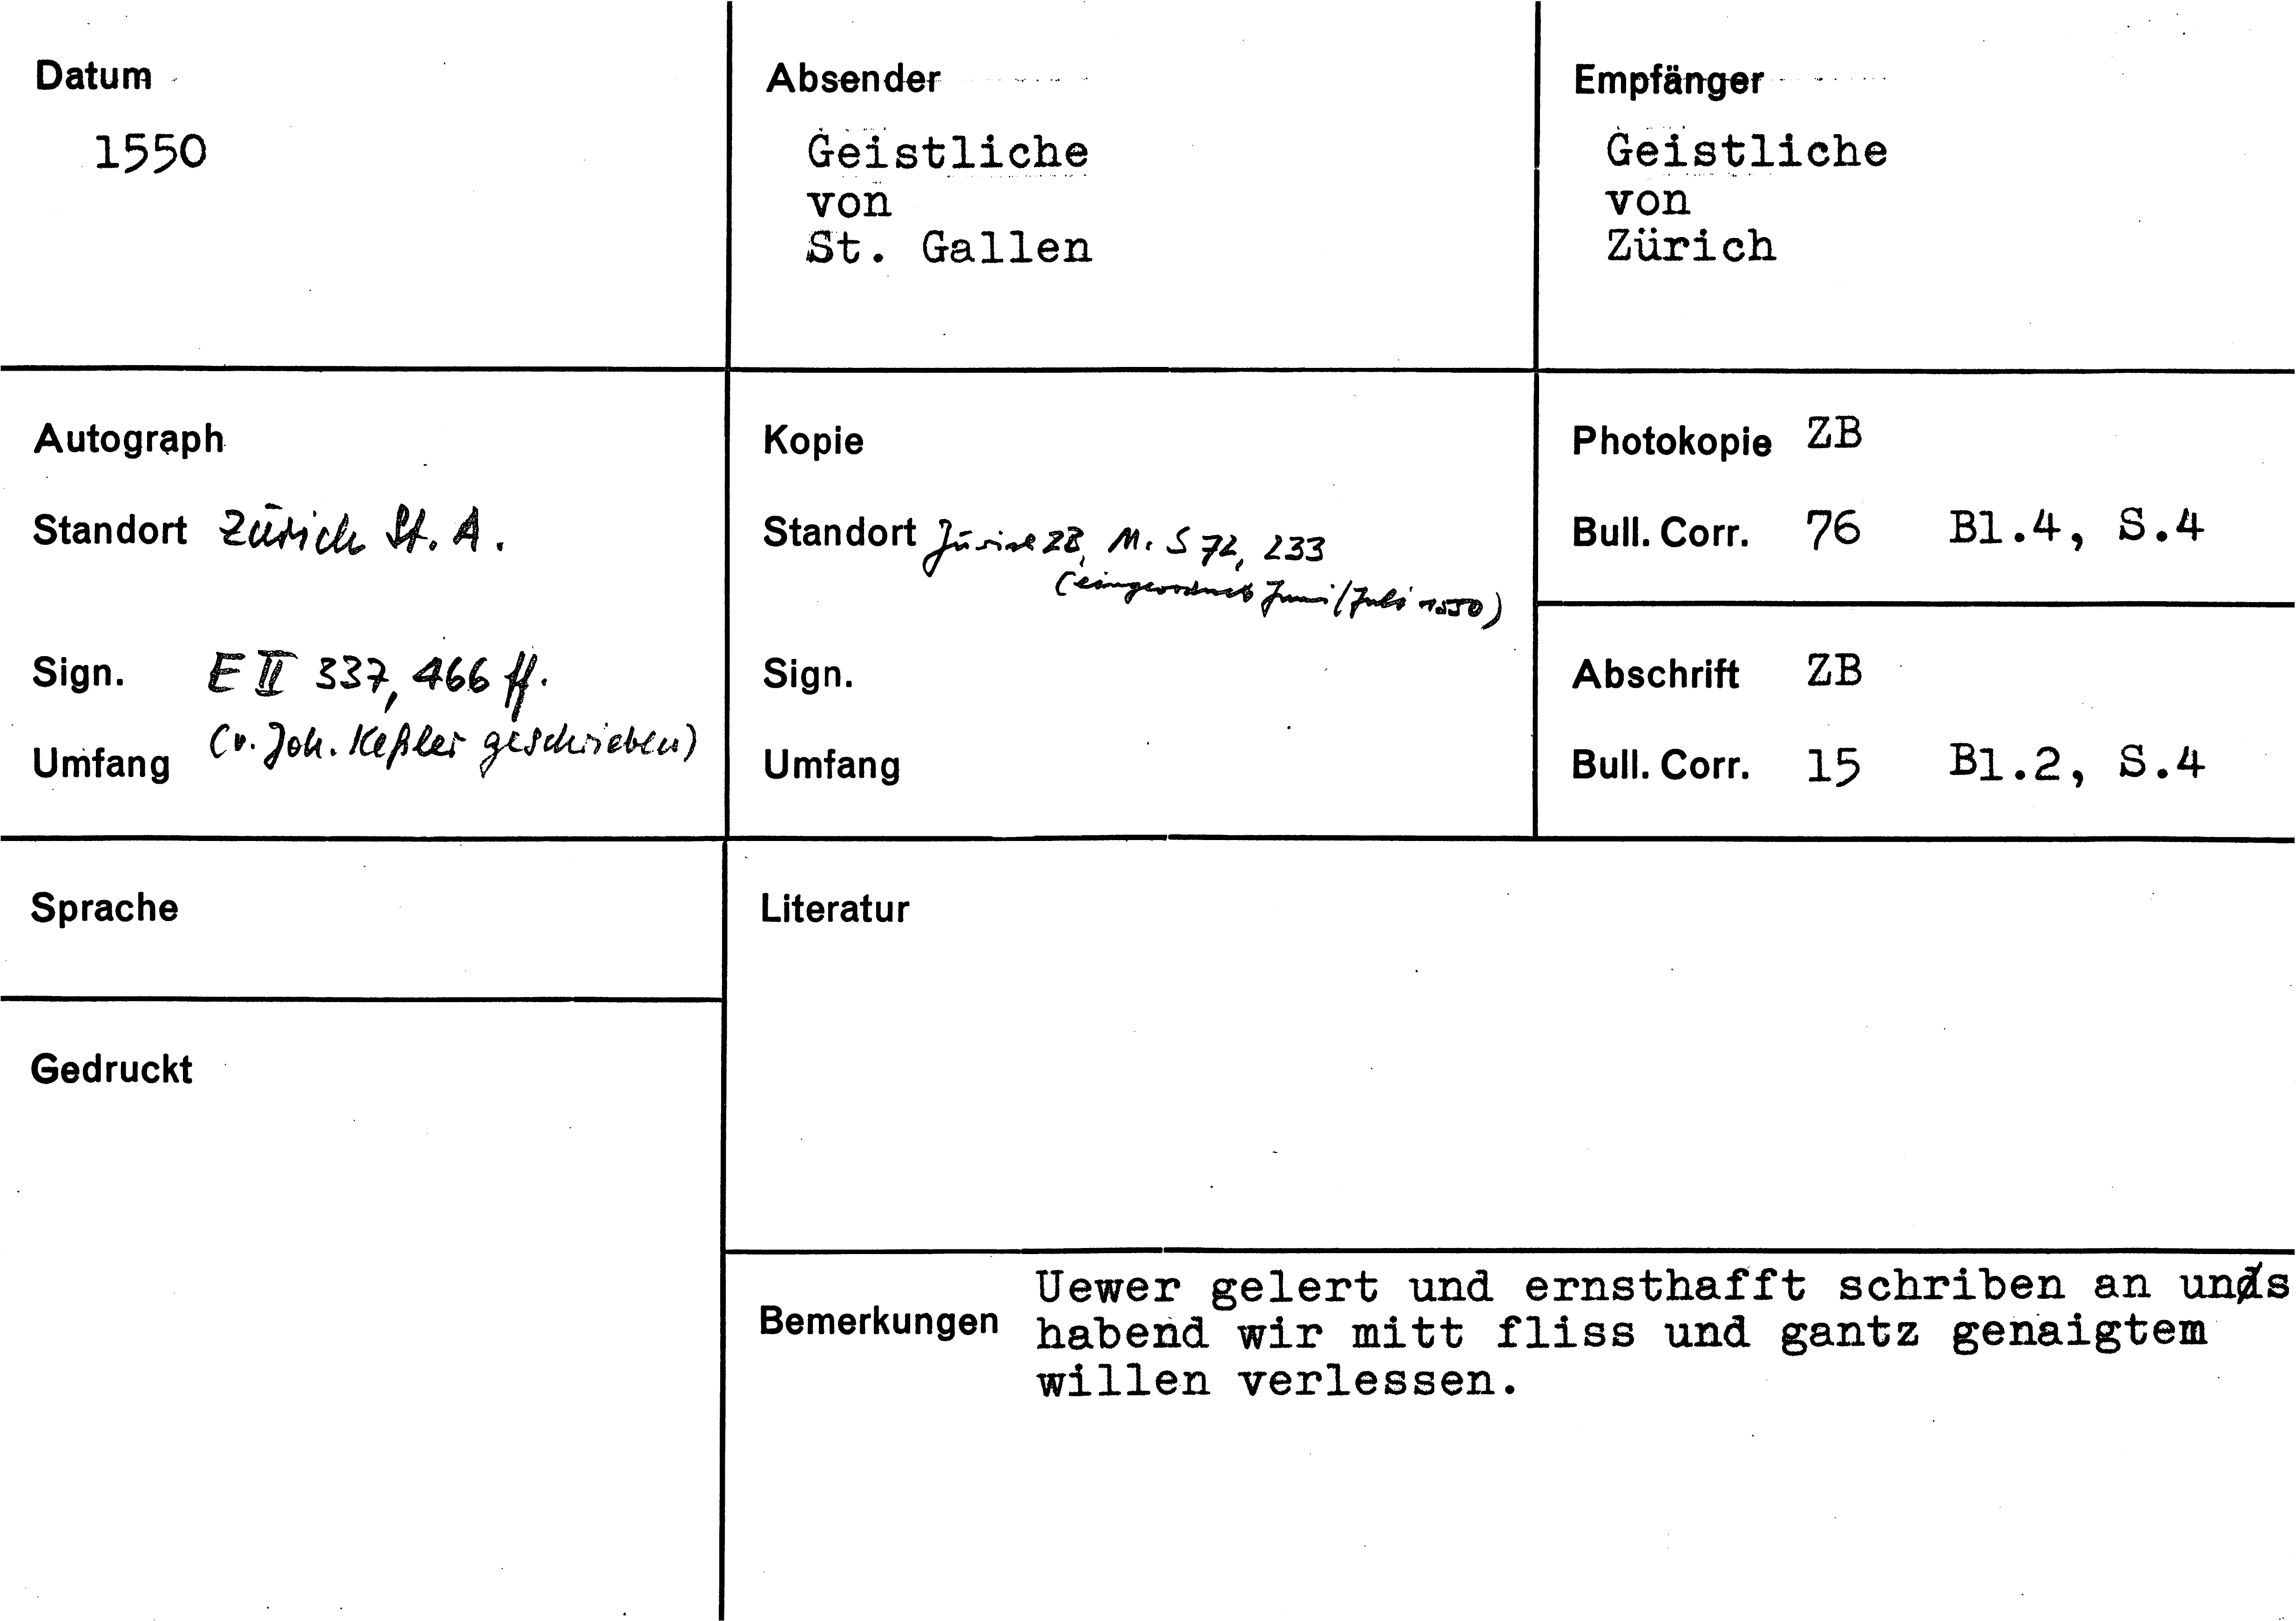 Datum
1550
Absender
Geistliche
von
St. Gallen
Empfänger
Geistliche
von
Zürich
Autograph
Standort Zürich St. A.
Sign. E II 337, 466 ff.
(v. Joh. Keßler geschrieben)
Umfang
Kopie
Standort Zürich ZB, M. S 72, 233
(eingeordnet Juni/Juli 1550)
Sign.
Umfang
Photokopie ZB
Bull. Corr. 76 Bl.4, S.4
Abschrift ZB
Bull. Corr. 15 Bl.2, S.4
Sprache
Gedruckt
Literatur
Bemerkungen
Uewer gelert und ernsthafft schriben an uns
habend wir mitt fliss und gantz genaigtem
willen verlessen.